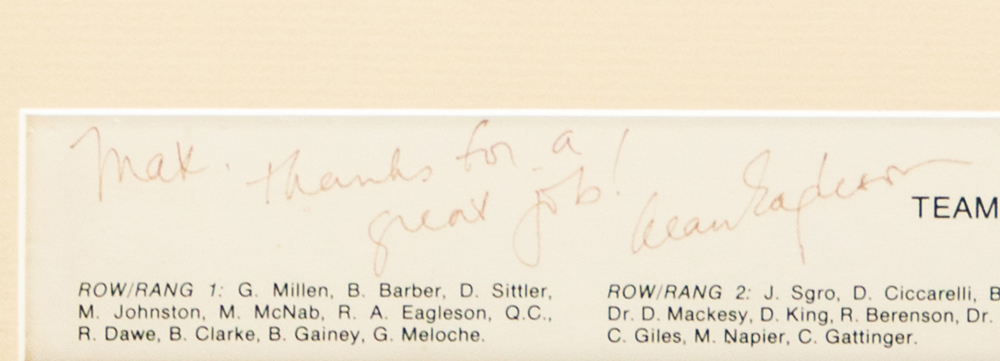 Max. Thanks for a
great job! Alan Eagleson
TEAM
ROW/RANG 1: G. Millen, B. Barber, D. Sittler,
M. Johnston, M. McNab, R. A. Eagleson, Q.C.,
R. Dawe, B. Clarke, B. Gainey, G. Meloche.
ROW/RANG 2: J. Sgro, D. Ciccarelli, B
Dr. D. Mackesy, D. King, R. Berenson, Dr.
C. Giles, M. Napier, C. Gattinger.